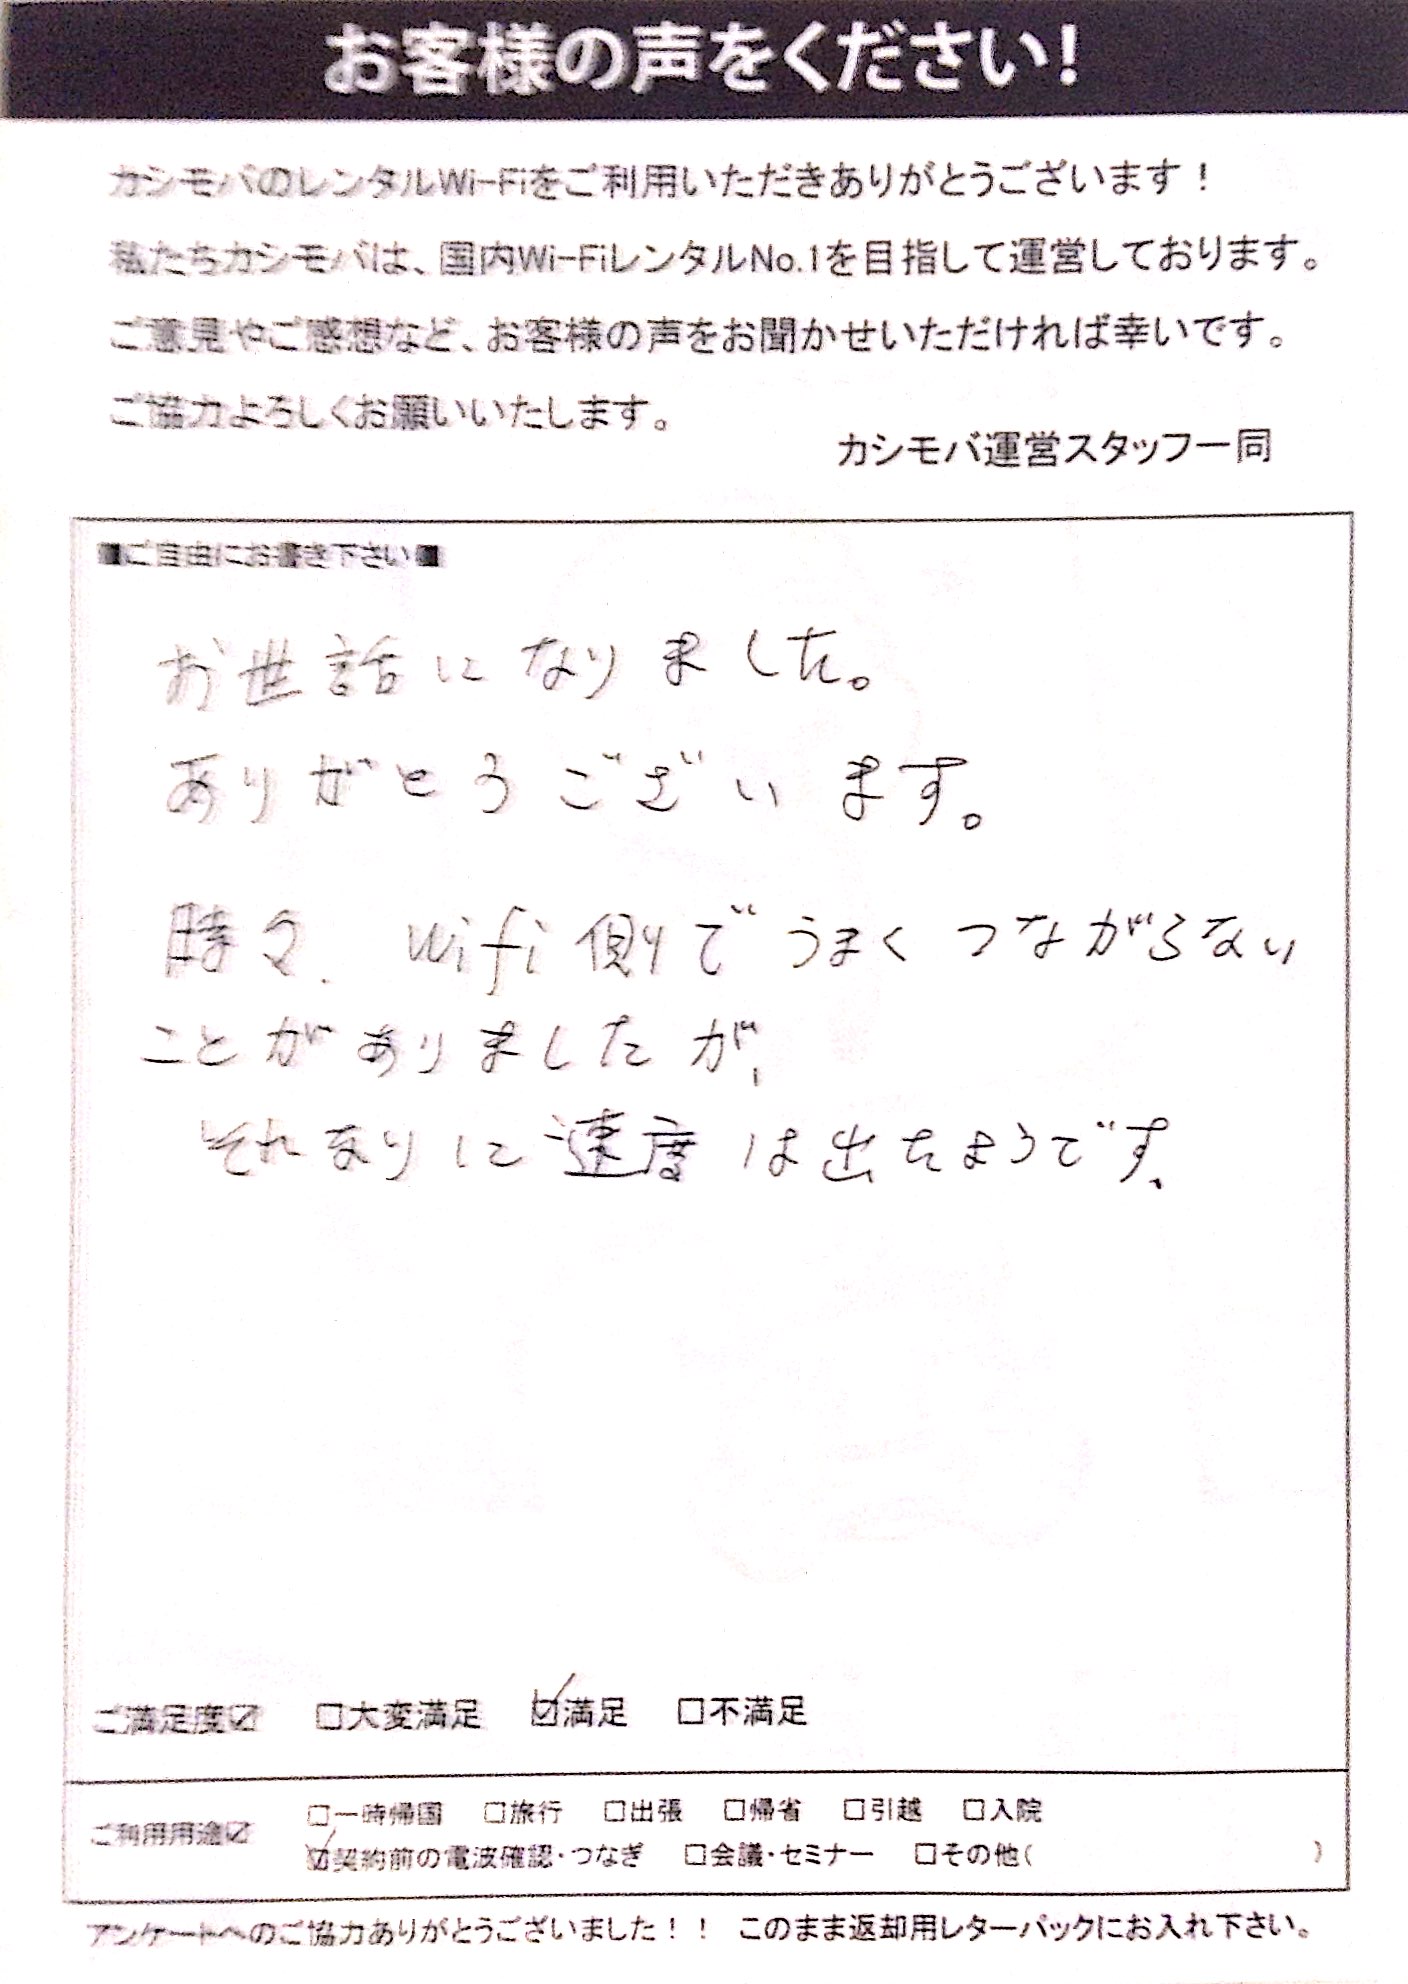 お客様の声をください!
カシモバのレンタルWi-Fiをご利用いただきありがとうございます!
私たちカシモバは、国内Wi-FiレンタルNo.1を目指して運営しております。
ご意見やご感想など、お客様の声をお聞かせいただければ幸いです。
ご協力よろしくお願いいたします。
カシモバ運営スタッフ一同
■ご自由にお書き下さい■
お世話になりました。
ありがとうございます。
時々、wifi側でうまくつながらない
ことがありましたが、
それなりに速度は出たようです、
ご満足度☑ □大変満足 ☑満足 □不満足
ご利用用途☑ □一時帰国 □旅行 □出張 □帰省 □引越 □入院
☑契約前の電波確認・つなぎ □会議・セミナー □その他( )
アンケートへのご協力ありがとうございました!! このまま返却用レターパックにお入れ下さい。